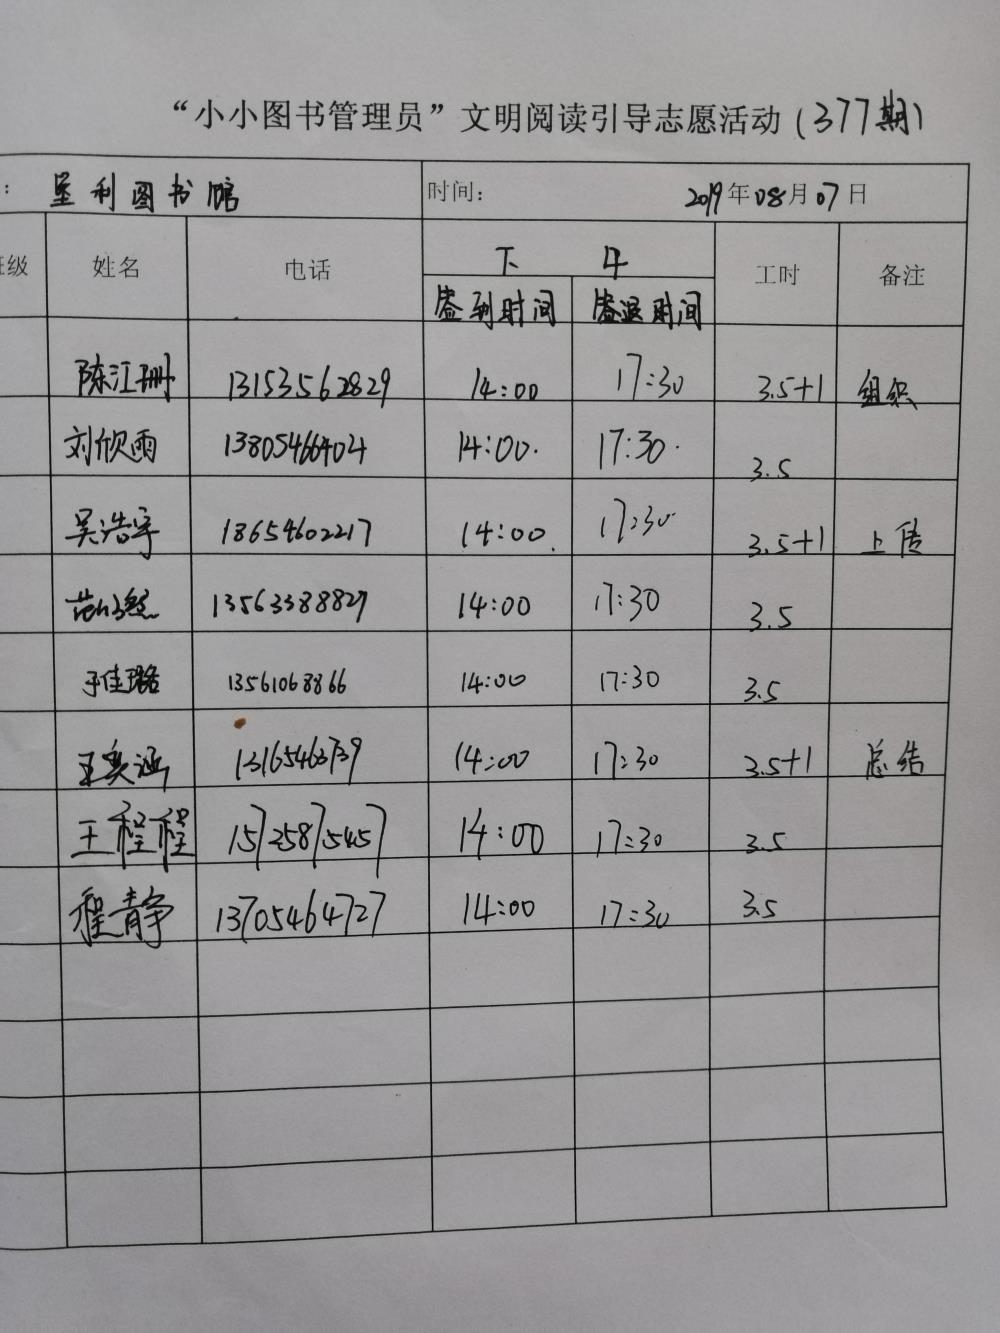 “小小图书管理员”文明阅读引导志愿活动(377期)
: 垦利图书馆 时间: 2019年08月07日
班级 姓名 电话 下 午 工时 备注
签到时间 签退时间
陈江珊 13153562829 14:00 17:30 3.5+1 组织
刘欣雨 13805466404 14:00. 17:30. 3.5
吴浩宇 18654602217 14:00. 17:30 3.5+1 上传
13563388829 14:00 17:30 3.5
于佳璐 13561068866 14:00 17:30 3.5
王奕涵 13165463739 14:00 17:30 3.5+1 总结
王程程 15725875457 14:00 17:30 3.5
程青静 13705464727 14:00 17:30 3.5